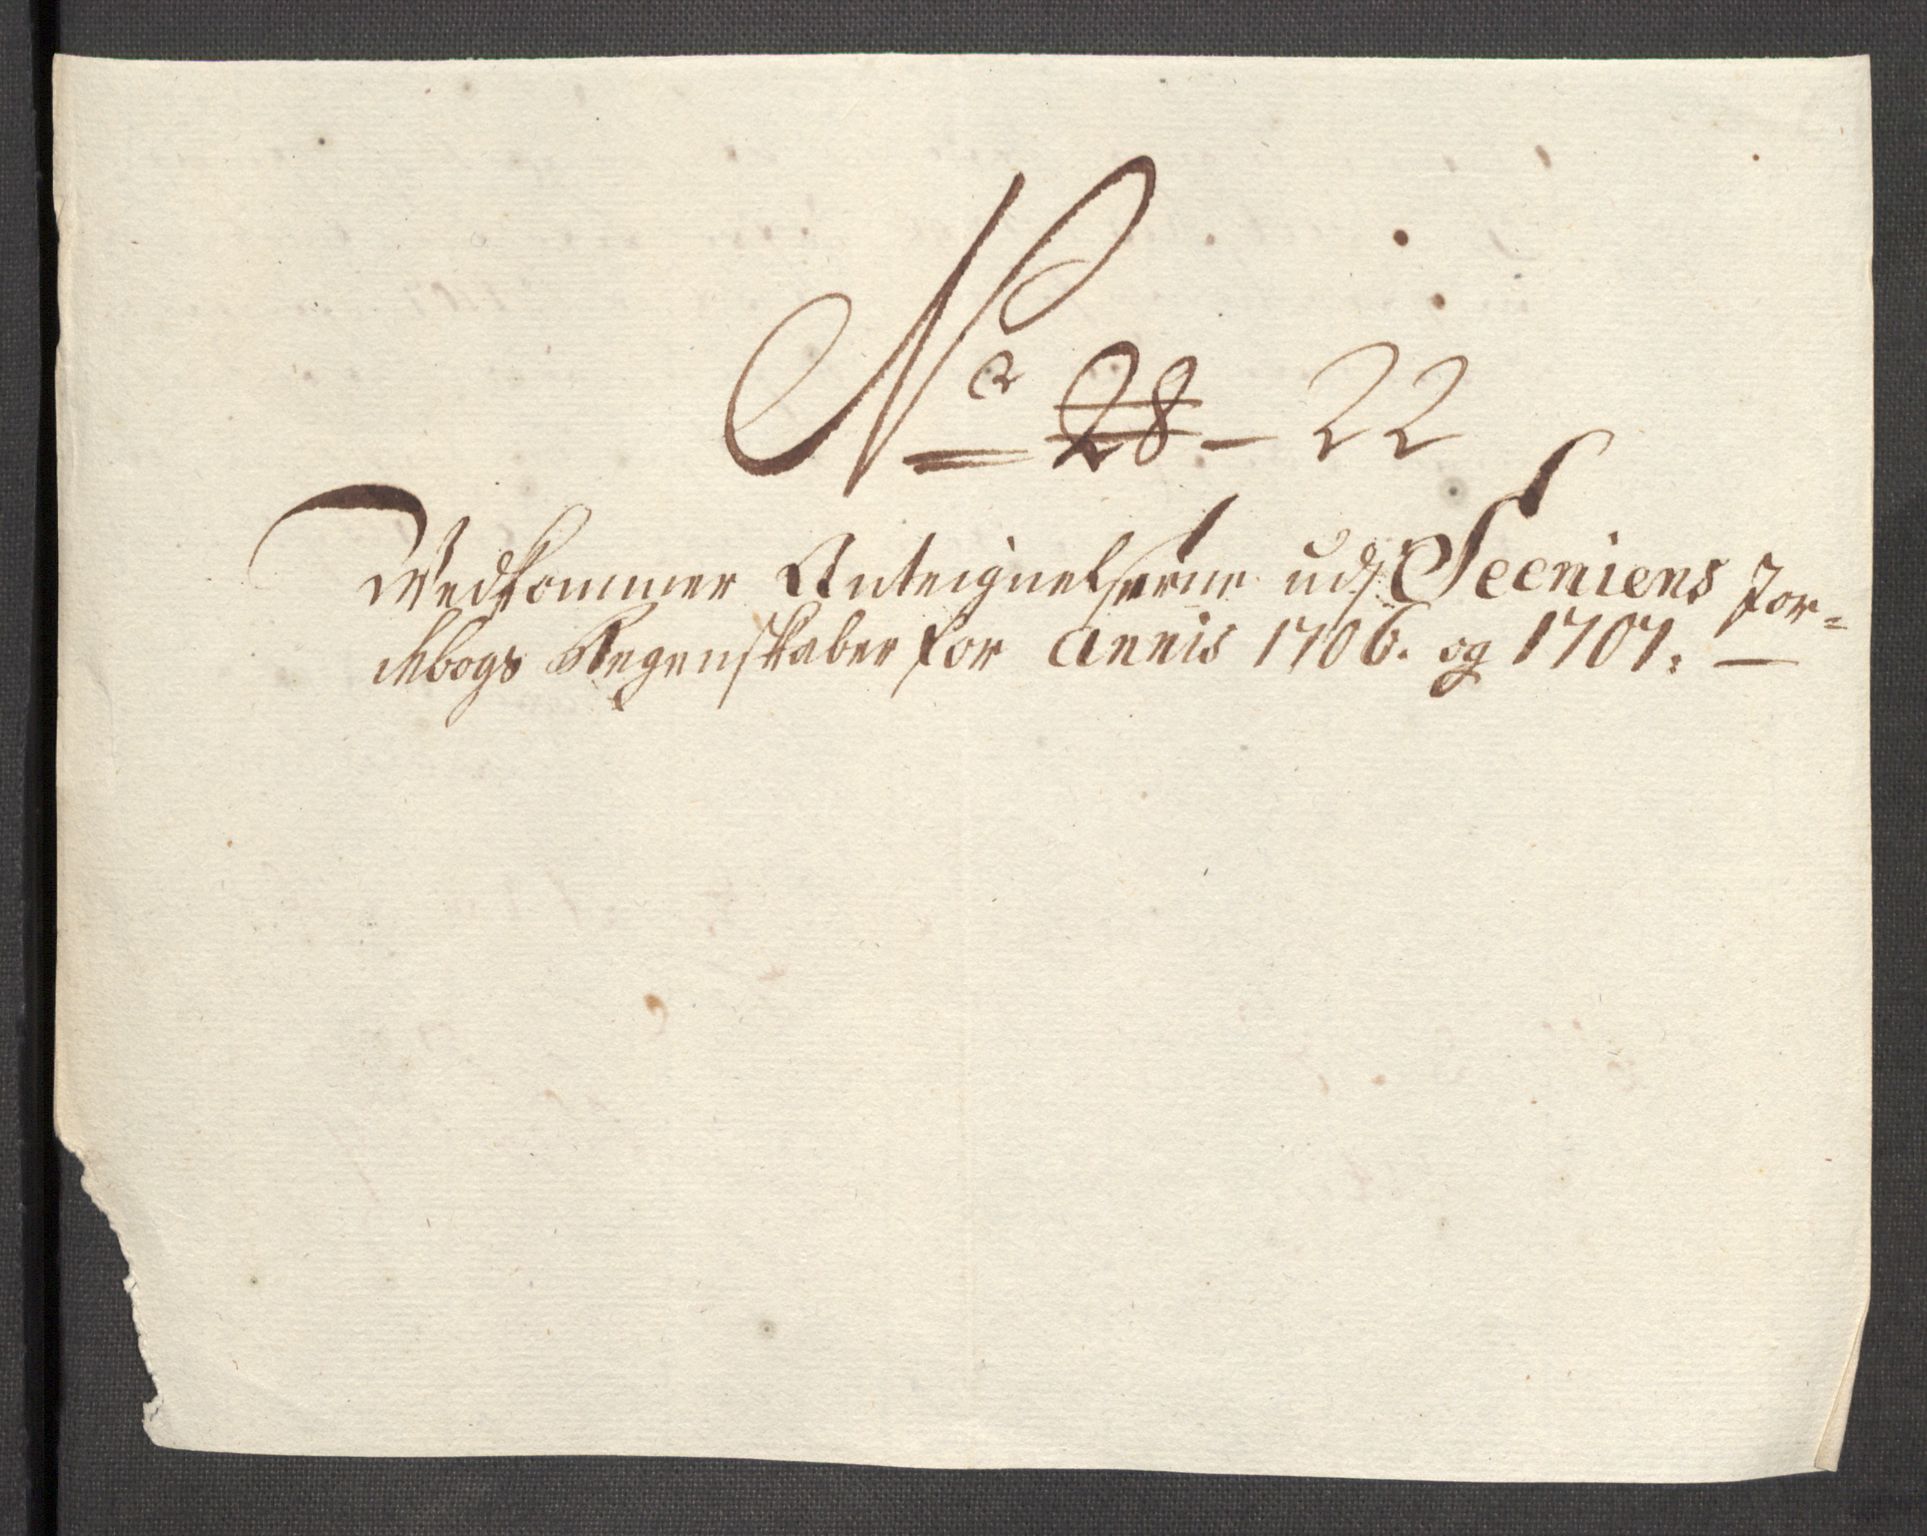 No 28 - 22
Vedkommer Anteignelserne udj Seeniens Jor-
debogs Regenskaber for Annis 1706. og 1707. —